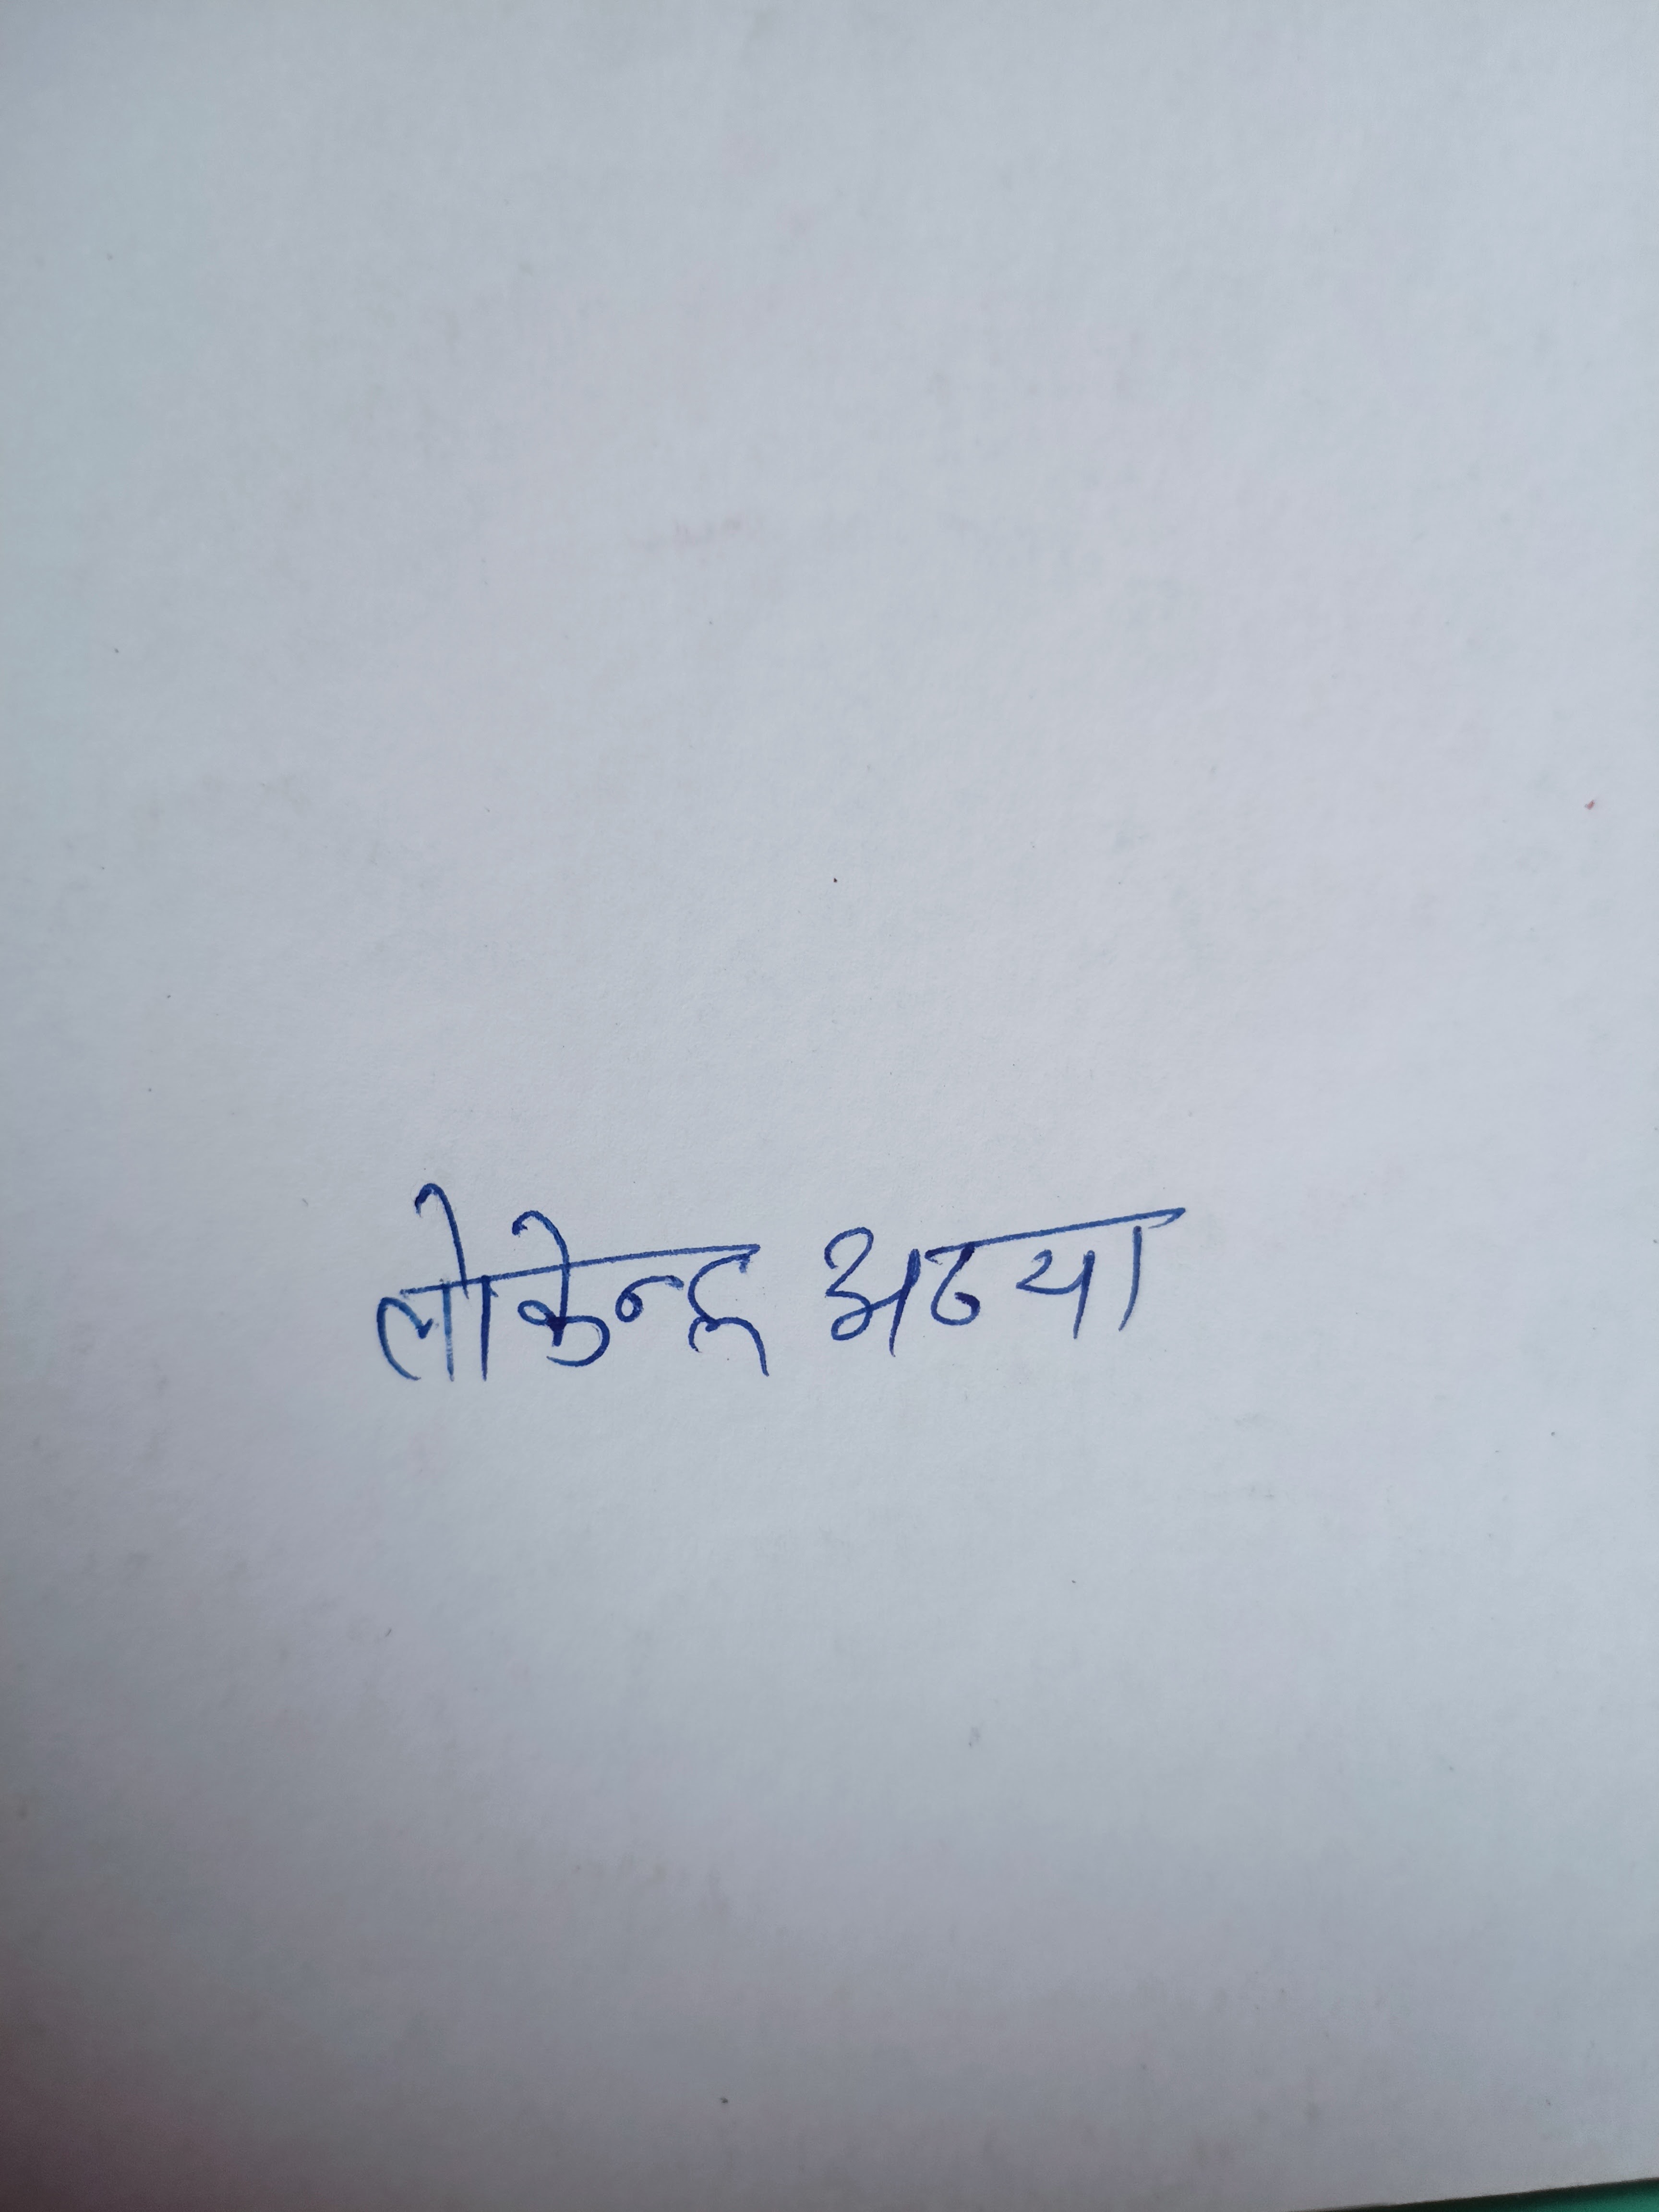 लोकेन्द्र अढया